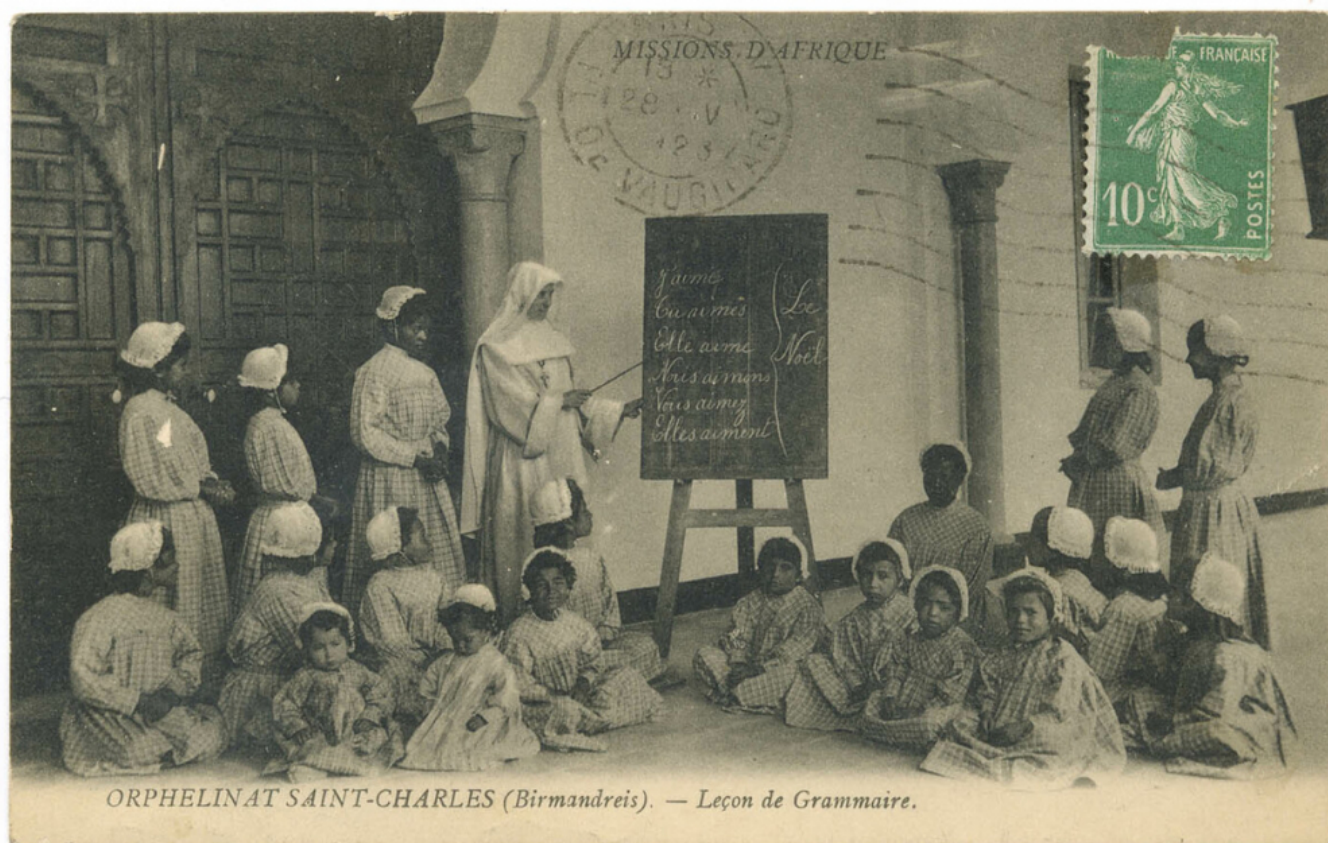 MISSIONS D'AFRIQUE
PARIS
15 *
28 V
R. DE VAUGIRARD
FRANÇAISE
10c
POSTES
J'aime
Tu aimes
Elle aime
Nous aimons
Vous aimez
Elles aiment
Le
Noël
ORPHELINAT SAINT-CHARLES (Birmandreis). — Leçon de Grammaire.